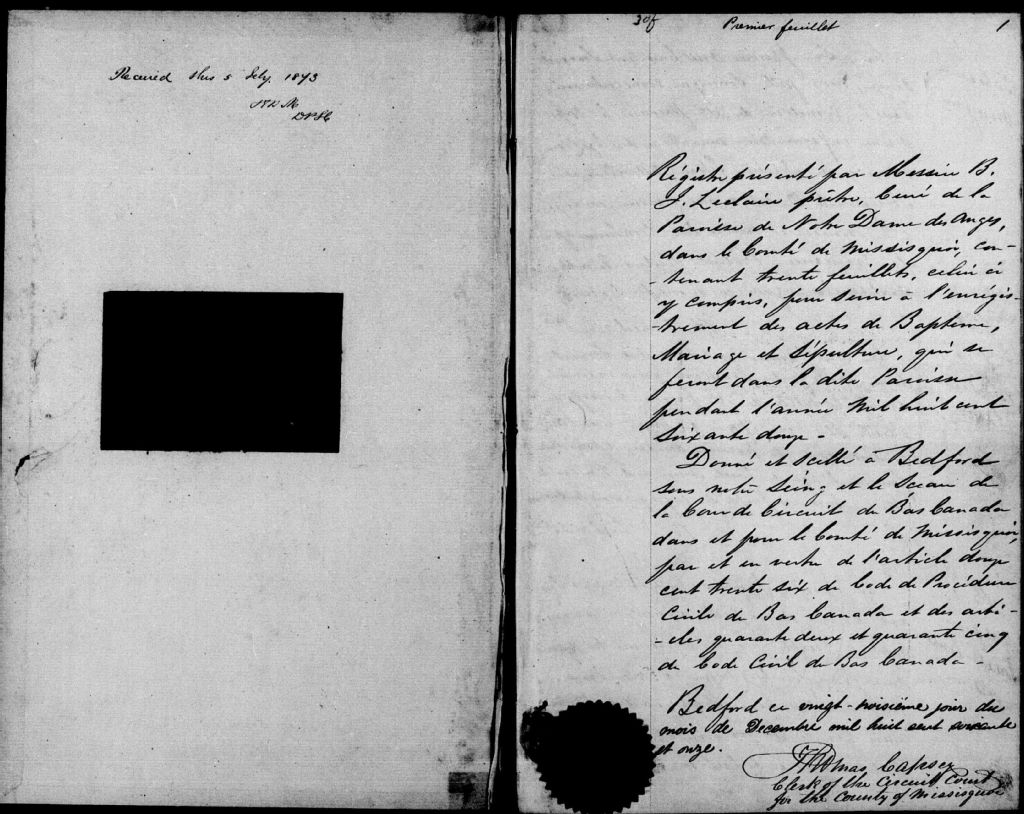 Received this 5 July, 1873
30f
Premier feuillet
1
Régistre présenté par Messire B.
J. Leclaire prêtre, Curé de la
Paroisse de Notre Dame des Anges,
dans le Comté de Missisquoi, con-
-tenant trente feuillets, celui ci
y compris, pour servir à l'enrégis-
-trement des actes de Bapteme,
Mariage et Sépulture, qui se
feront dans la dite Paroisse
pendant l'année Mil huit cent
soixante douze -
Donné et scellé à Bedford
sous notre Seing et le Sceau de
la Cour de Circuit du Bas Canada
dans et pour le Comté de Missisquoi,
par et en vertu de l'article douze
cent trente six du Code de Procédure
Civile du Bas Canada et des arti-
-cles quarante deux et quarante cinq
du Code Civil du Bas Canada -
Bedford ce vingt-troisième jour du
mois de Decembre mil huit cent soixante
et onze.
Thomas Capsey
Clerk of the Circuit Court
for the County of Missisquoi